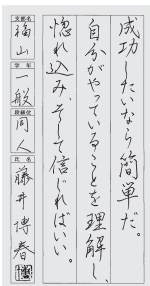 成功したいなら簡単だ。
自分がやっていることを理解し、
惚れ込み、そして信じればいい。
支部名
福山
学年
一般
段級位
同人
氏名
藤井博春